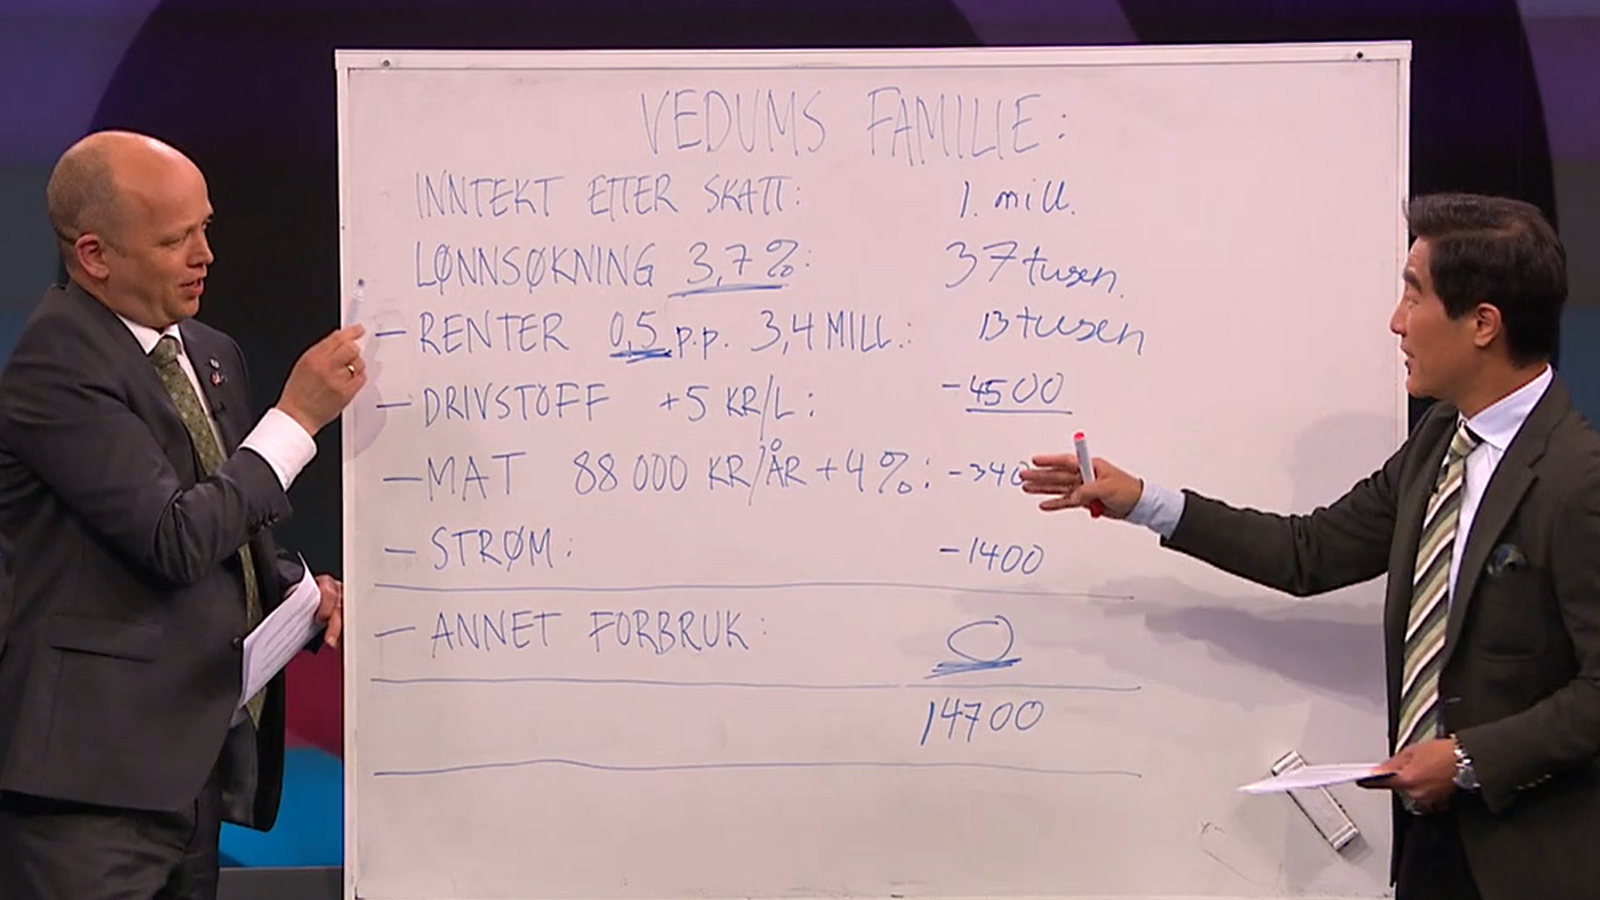 VEDUMS FAMILIE:
INNTEKT ETTER SKATT: 1. mill.
LØNNSØKNING 3,7%: 37 tusen.
— RENTER 0,5 p.p. 3,4 MILL.: 13 tusen
— DRIVSTOFF +5 KR/L: -4500
— MAT 88 000 KR/ÅR +4%: -340
— STRØM: -1400
— ANNET FORBRUK: 0
14700